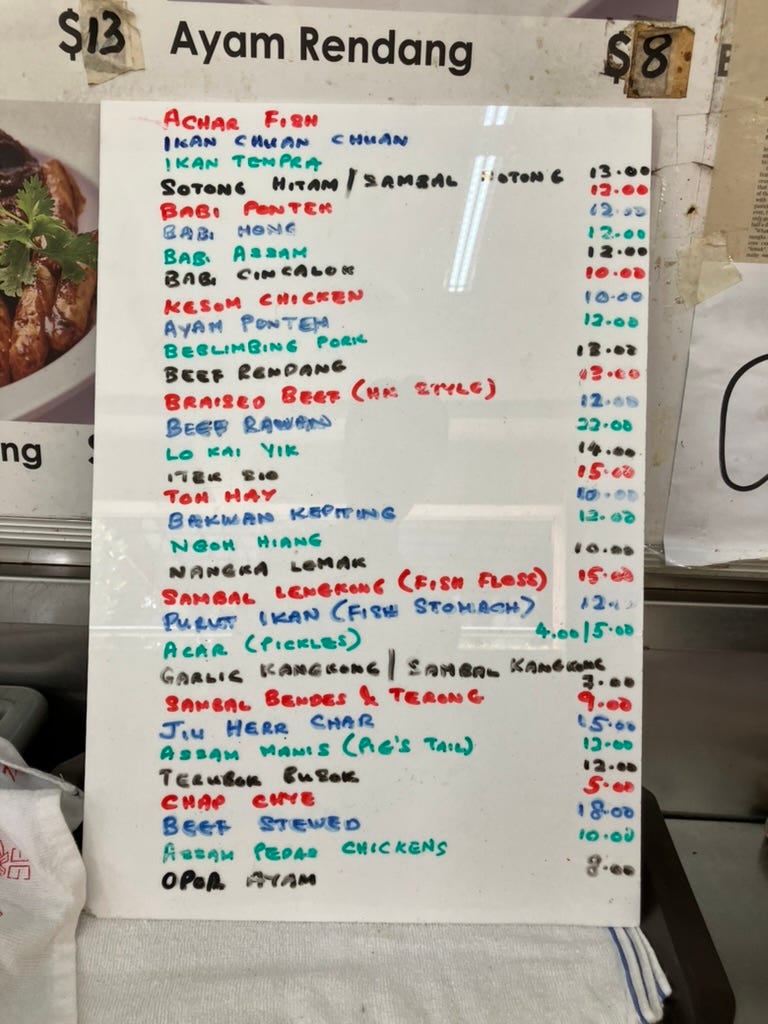 $13 Ayam Rendang $8
ACHAR FISH
IKAN CHUAN CHUAN
IKAN TEMPRA
SOTONG HITAM / SAMBAL SOTONG 13.00
BABI PONTEH 12.00
BABI HONG 12.00
BABI ASSAM 12.00
BABI CINCALOK 12.00
KESOM CHICKEN 10.00
AYAM PONTEH 10.00
BEBLIMBING PORK 12.00
BEEF RENDANG 13.00
BRAISED BEEF (HK STYLE) 13.00
BEEF RAWAN 12.00
LO KAI YIK 22.00
ITEK SIO 14.00
TOH HAY 15.00
BAKWAN KEPITING 10.00
NGOH HIANG 12.00
NANGKA LEMAK 10.00
SAMBAL LENGKONG (FISH FLOSS) 15.00
PURUT IKAN (FISH STOMACH)
ACAR (PICKLES) 4.00/5.00
GARLIC KANGKONG / SAMBAL KANGKONG 7.00
SAMBAL BENDES & TERONG 9.00
JIU HERR CHAR 15.00
ASSAM MANIS (PIG'S TAIL) 12.00
TERUBOK BUSOK 12.00
CHAP CHYE 5.00
BEEF STEWED 18.00
ASSAM PEDAS CHICKENS 10.00
OPOR AYAM 8.00
ng